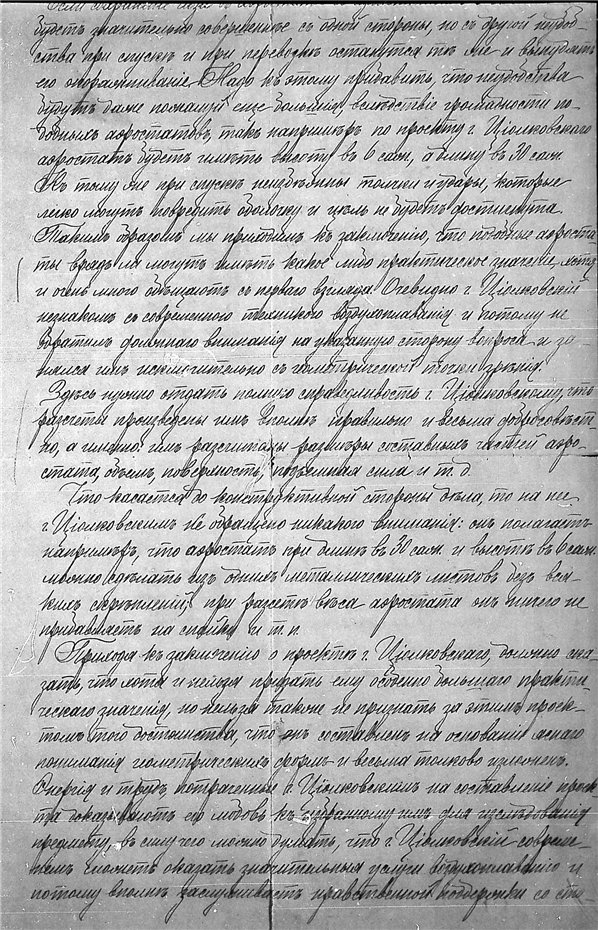 будетъ значительно совершеннѣе съ одной стороны, но съ другой неудоб-
ства при спускѣ и при перевозкѣ останутся тѣ же и вынудятъ
его опоражниваніе. Надо къ этому прибавить, что неудобства
будутъ даже пожалуй еще большія вслѣдствіе громадности по-
добныхъ аэростатовъ, такъ напримѣръ по проекту г. Ціолковскаго
аэростатъ будетъ имѣть высоту въ 6 саж. а длину въ 30 саж.
Къ тому же при спускѣ неизбѣжны толчки и удары, которые
легко могутъ повредить оболочку и цѣль не будетъ достигнута.
Такимъ образомъ мы приходимъ къ заключенію, что подобные аэроста
ты врядъ ли могутъ имѣть какое либо практическое значеніе, хотя
и очень много обѣщаютъ съ перваго взгляда. Очевидно г. Ціолковскій
незнакомъ съ современной техникой воздухоплаванія и потому не
обратилъ должнаго вниманія на указанную сторону вопроса и за-
нялся имъ исключительно съ геометрической точки зрѣнія.
Здѣсь нужно отдать полную справедливость г. Ціолковскому, что
разсчеты произведены имъ вполнѣ правильно и весьма добросовѣст-
но, а именно: имъ разсчитаны размѣры составныхъ частей аэро-
стата, объемъ, поверхность, подъемная сила и т. д.
Что касается до конструктивной стороны дѣла, то на нее
г. Ціолковскимъ не обращено никакого вниманія: онъ полагаетъ
напримѣръ, что аэростатъ при длинѣ въ 30 саж. и высотѣ въ 6 саж.
можно сдѣлать изъ однихъ металлическихъ листовъ безъ вся-
кихъ скрѣпленій; при разсчетѣ вѣса аэростата онъ ничего не
прибавляетъ на спайки и т. п.
Приходя къ заключенію о проектѣ г. Ціолковскаго, должно ска-
зать, что хотя и нельзя придать ему особенно большаго практи-
ческаго значенія, но нельзя также не признать за этимъ проек-
томъ того достоинства, что онъ составленъ на основаніи яснаго
пониманія геометрическихъ формъ и весьма толково изложенъ.
Энергія и трудъ, потраченные г. Ціолковскимъ на составленіе проек-
та доказываютъ его любовь къ избранному имъ для изслѣдованія
предмету, въ силу чего можно думать, что г. Ціолковскій совреме-
немъ можетъ оказать значительныя услуги воздухоплаванію и
потому вполнѣ заслуживаетъ нравственной поддержки со сто-